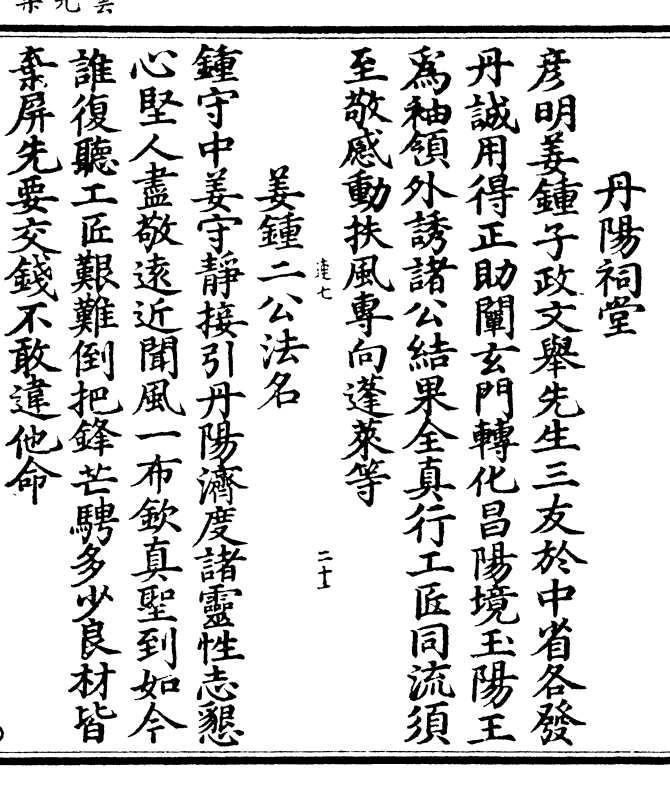 丹陽祠堂
彦明姜鍾子政文舉先生三友於中省各發
丹誠用得正助闡玄門轉化昌陽境玉陽王
爲袖領外誘諸公結果全真行工匠同流須
至敬感動扶風專向蓬萊等
二十二
姜鍾二公法名
鍾守中姜守靜接引丹陽濟度諸靈性志懇
心堅人盡敬遠近聞風一布欽真聖到如今
誰復聽工匠艱難倒把鋒芒騁多少良材皆
棄屏先要交錢不敢違他命